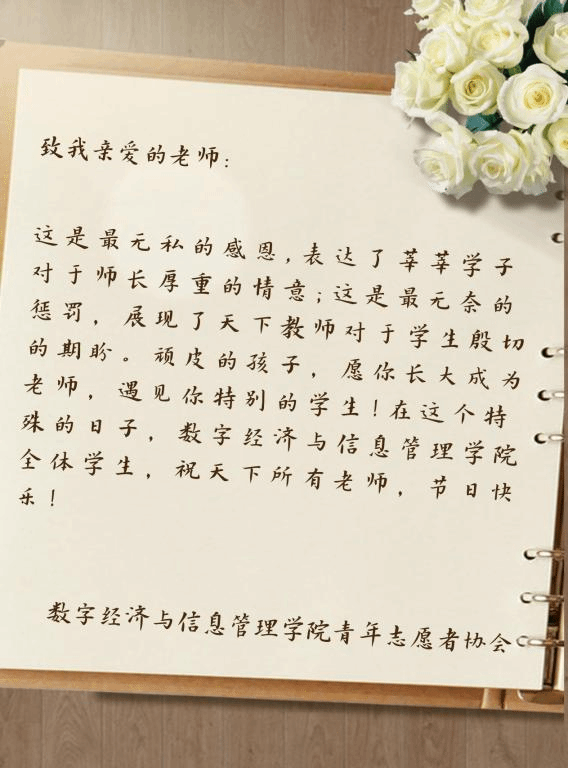 致我亲爱的老师:
这是最无私的感恩,表达了莘莘学子
对于师长厚重的情意;这是最无奈的
惩罚，展现了天下教师对于学生殷切
的期盼。顽皮的孩子，愿你长大成为
老师，遇见你特别的学生!在这个特
殊的日子，数字经济与信息管理学院
全体学生，祝天下所有老师，节日快
乐!
数字经济与信息管理学院青年志愿者协会